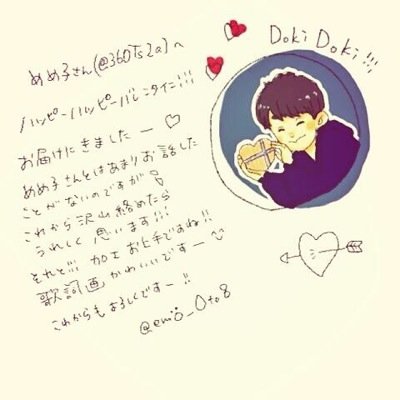 めめ子さん(@360Ts2a)へ
ハッピーハッピーバレンタイン!!!
お届けにきましたー♡
めめ子さんとはあまりお話した
ことがないのですが
これから沢山絡めたら
うれしく思います!!!
それと!!! 加工お上手ですね!!
歌詞画かわいいですー
これからもよろしくですー!!
Doki Doki!!!